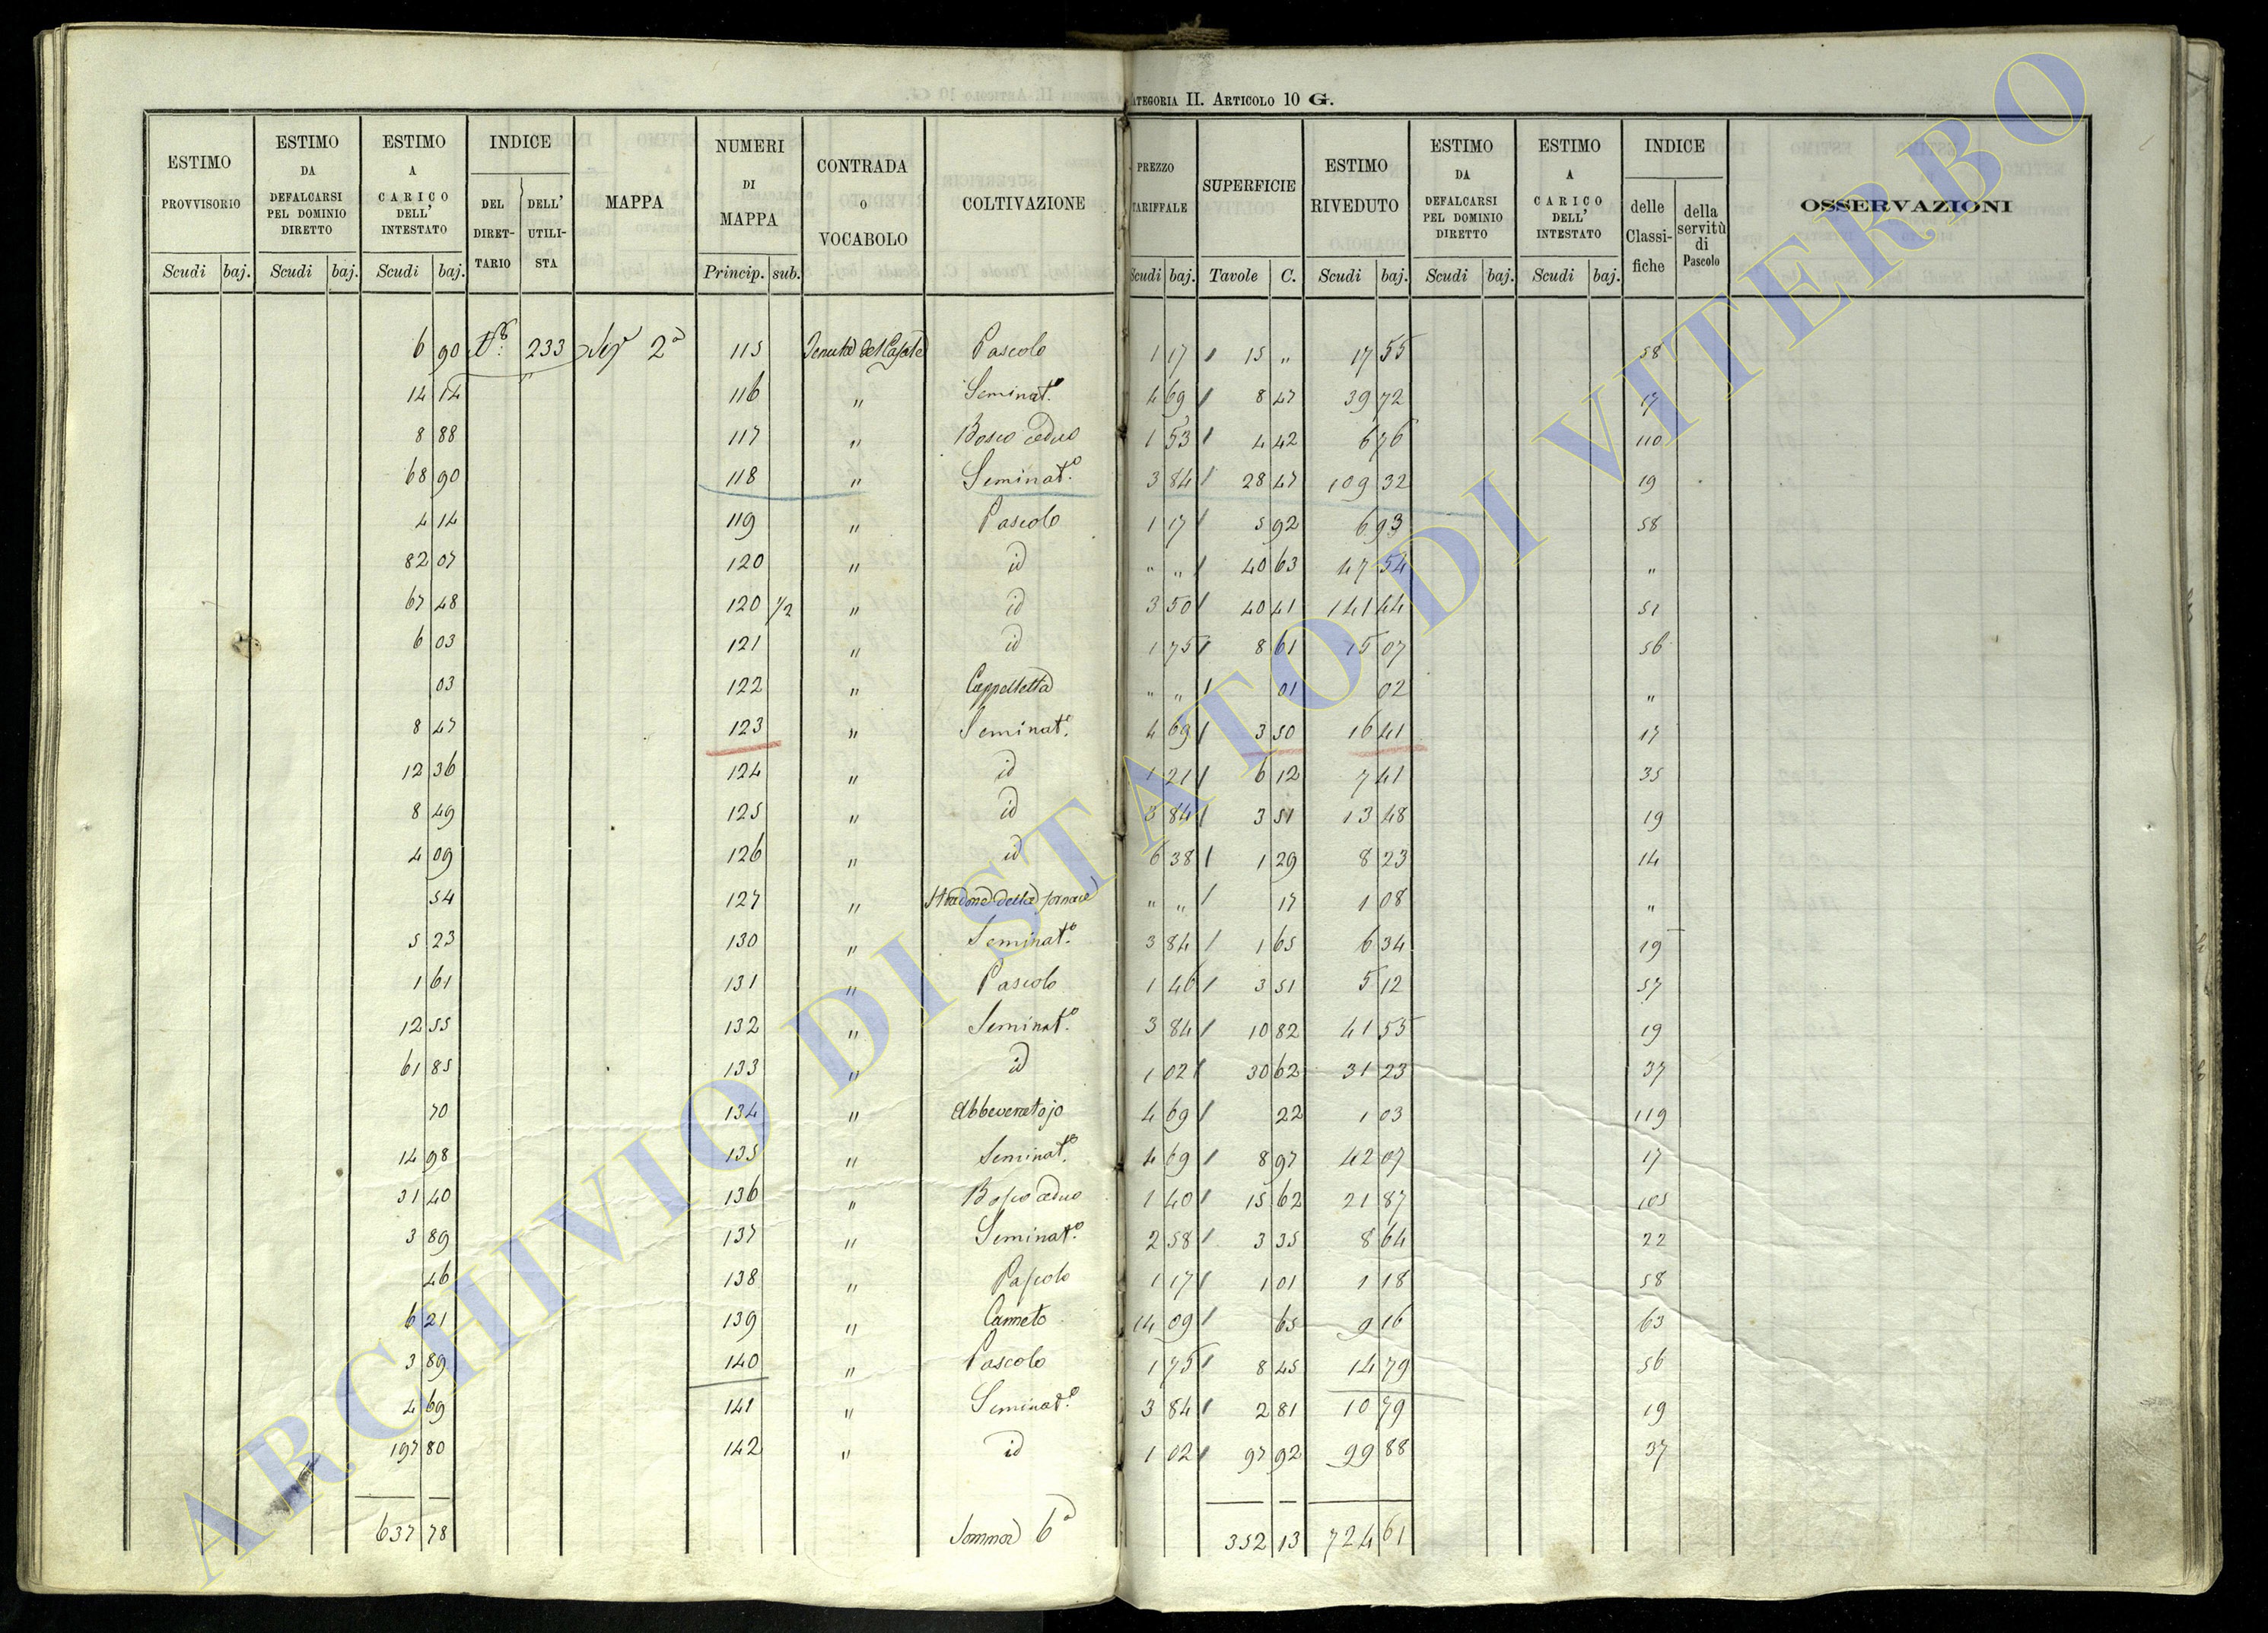 ATEGORIA II. ARTICOLO 10 G.
ESTIMO PROVVISORIO Scudi baj. ESTIMO DA DEFALCARSI PEL DOMINIO DIRETTO Scudi baj. ESTIMO A CARICO DELL' INTESTATO Scudi baj. INDICE DEL DIRETTARIO DELL' UTILISTA MAPPA NUMERI DI MAPPA Princip. sub. CONTRADA O VOCABOLO COLTIVAZIONE PREZZO TARIFFALE Scudi baj. SUPERFICIE Tavole C. ESTIMO RIVEDUTO Scudi baj. ESTIMO DA DEFALCARSI PEL DOMINIO DIRETTO Scudi baj. ESTIMO A CARICO DELL' INTESTATO Scudi baj. INDICE delle Classifiche della servitù di Pascolo OSSERVAZIONI
6 90 233 2a 115 Pascolo 1 17 15 " 17 55 58
14 14 116 " Seminat.o 4 69 8 47 39 72 17
8 88 117 " Bosco ceduo 1 53 4 42 6 76 110
68 90 118 " Seminat.o 3 84 28 47 109 32 19
4 14 119 " Pascolo 1 17 5 92 6 93 58
82 07 120 " id " " 40 63 47 54 "
67 48 120 1/2 " id 3 50 40 41 141 44 51
6 03 121 " id 1 75 8 61 15 07 56
03 122 " Cappelletta " " 01 02 "
8 47 123 " Seminat.o 4 69 3 50 16 41 17
12 36 124 " id 1 21 6 12 7 41 35
8 49 125 " id 3 84 3 51 13 48 19
4 09 126 " id 6 38 1 29 8 23 14
54 127 " Stradone della fornace " " 17 1 08 "
5 23 130 " Seminat.o 3 84 1 65 6 34 19
1 61 131 " Pascolo 1 46 3 51 5 12 57
12 55 132 " Seminat.o 3 84 10 82 41 55 19
61 85 133 " id 1 02 30 62 31 23 37
70 134 " Abbeveratojo 4 69 22 1 03 119
14 98 135 " Seminat.o 4 69 8 97 42 07 17
31 40 136 " Bosco ceduo 1 40 15 62 21 87 105
3 89 137 " Seminat.o 2 58 3 35 8 64 22
46 138 " Pascolo 1 17 1 01 1 18 58
6 21 139 " Canneto 14 09 65 9 16 63
3 89 140 " Pascolo 1 75 8 45 14 79 56
4 69 141 " Seminat.o 3 84 2 81 10 79 19
197 80 142 " id 1 02 97 92 99 88 37
637 78 Somma 6a 352 13 724 61
ARCHIVIO DI STATO DI VITERBO